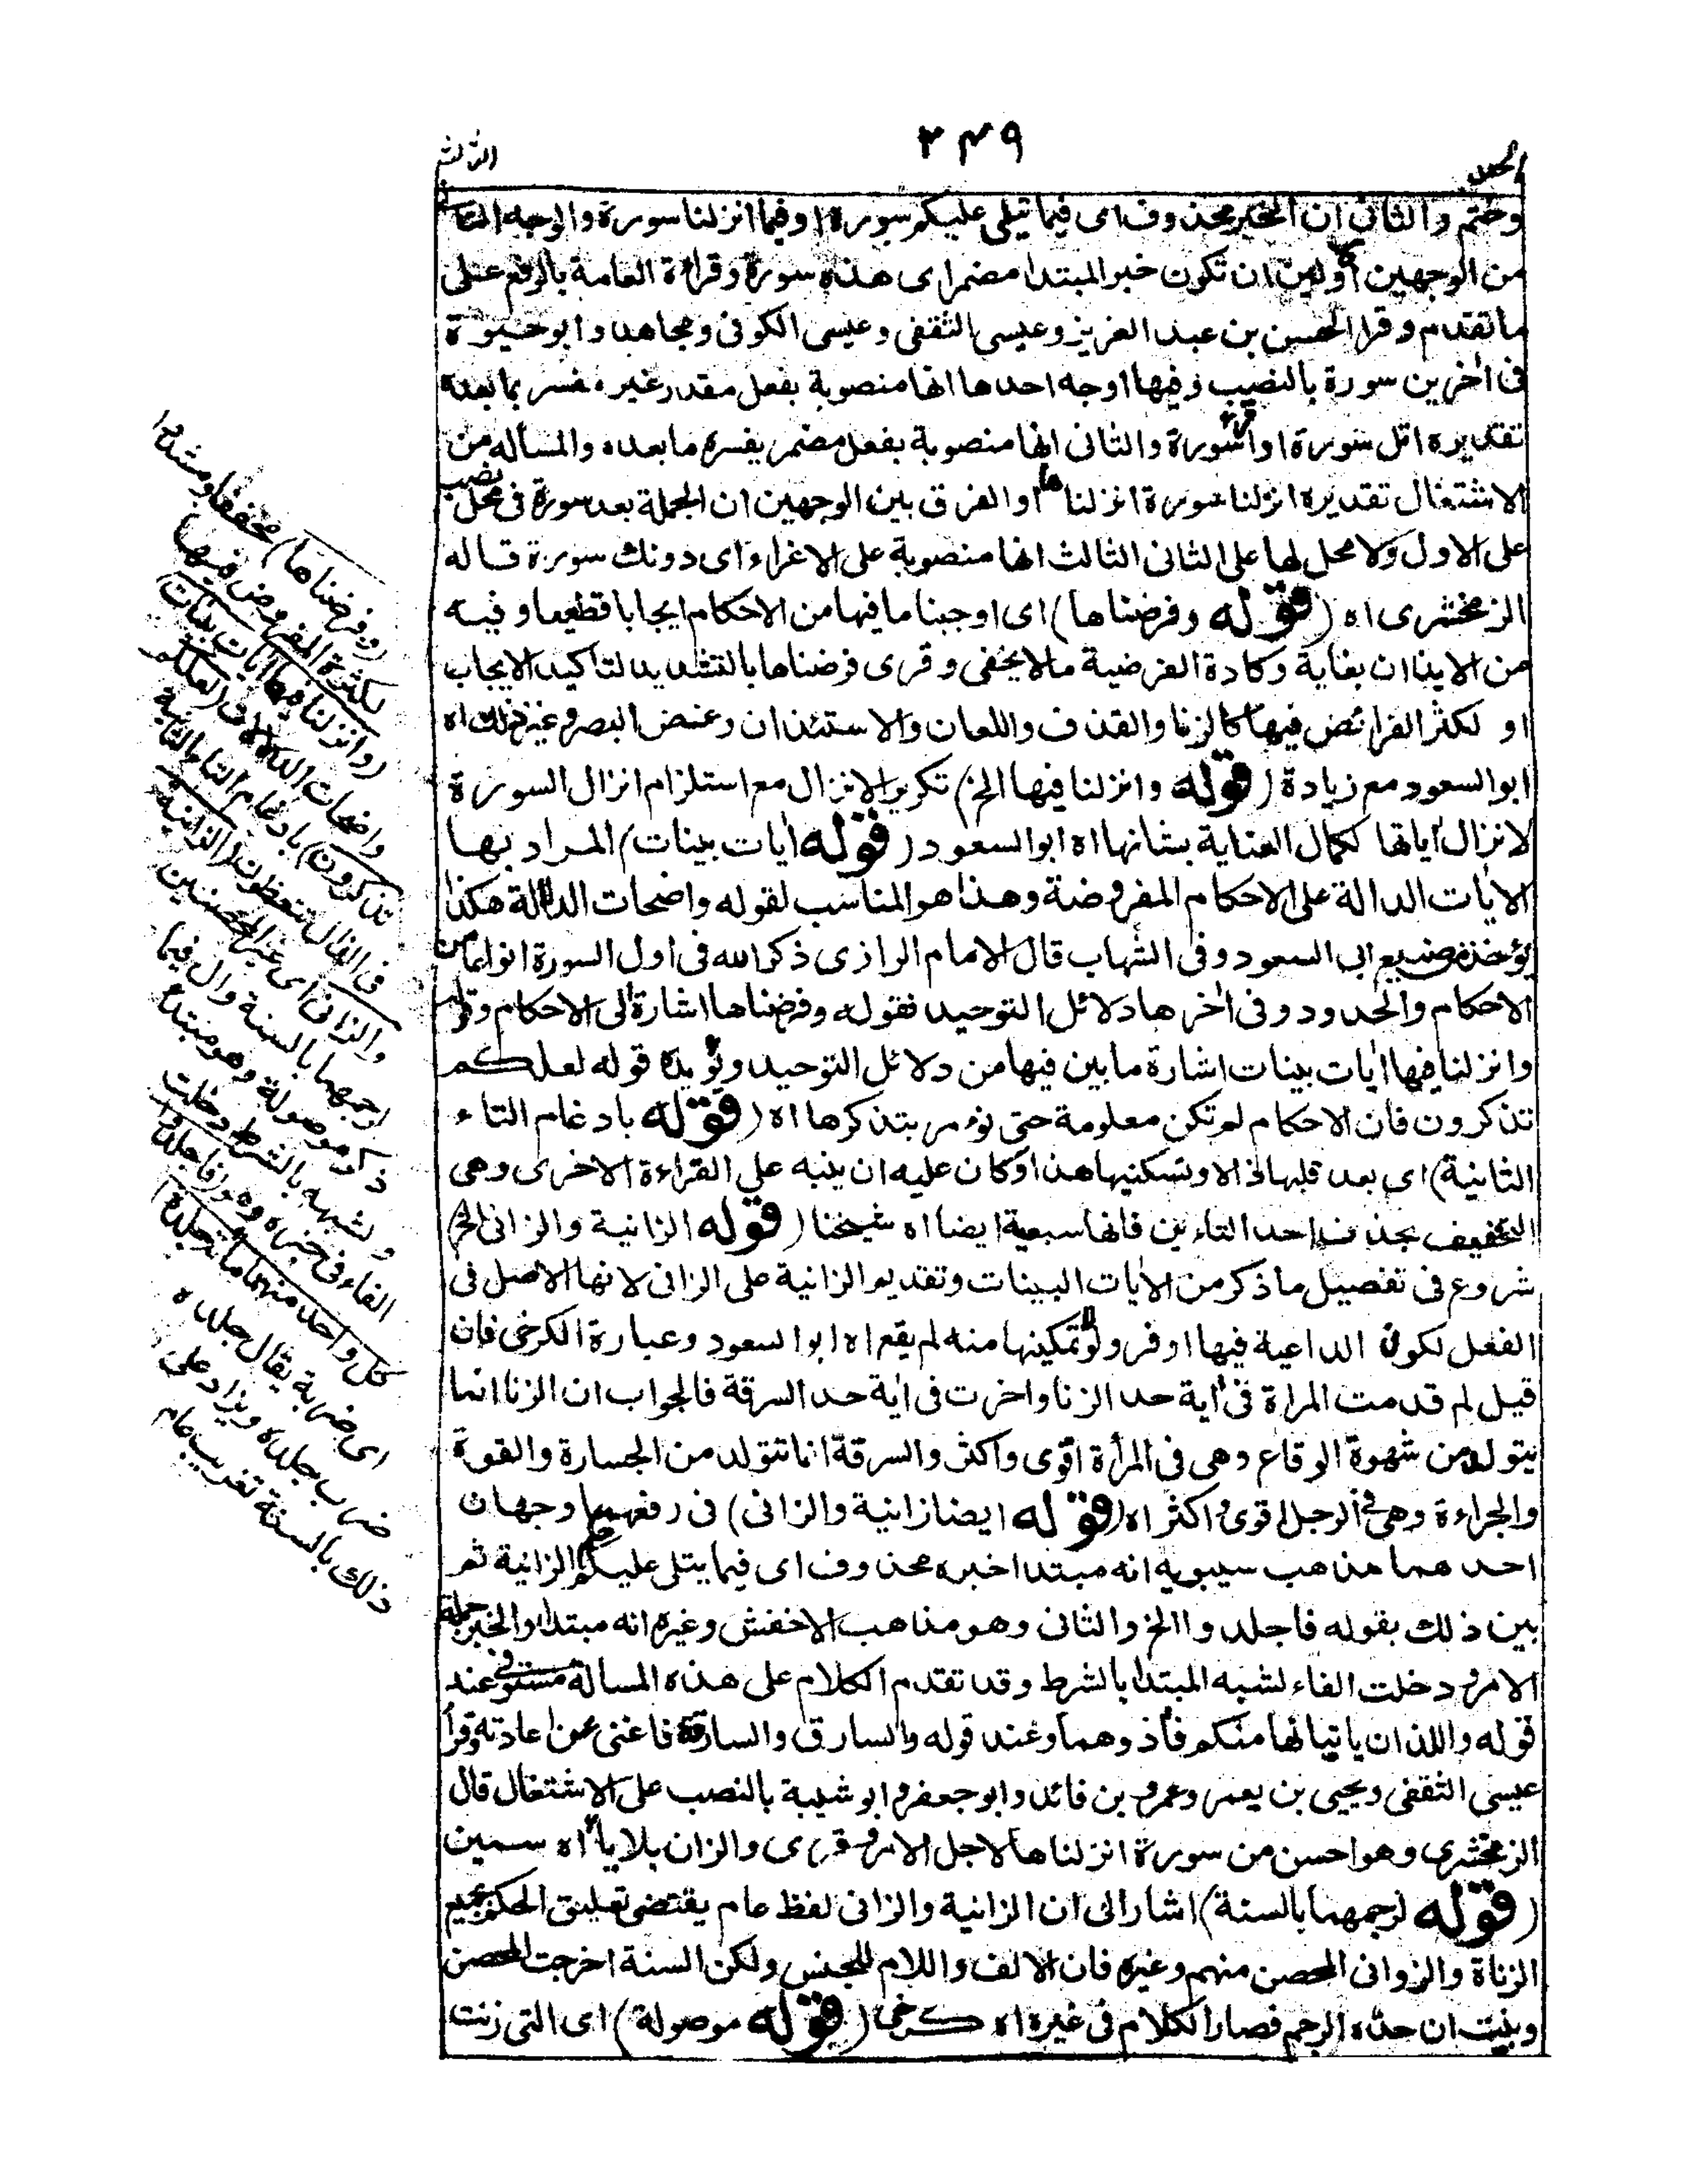 الجمل
٢٤٩
الثالث
وختم والثانى ان الخبر محذوف اى فيما يتلى عليكم سورة او فيما انزلنا سورة والوجه الثانى
من الوجهين الاولين ان تكون خبر المبتدا مضمر اى هذه سورة وقراءة العامة بالرفع على
ما تقدم وقرا الحسن بن عبد العزيز وعيسى الثقفى وعيسى الكوفى ومجاهد وابو حيوة
فى اخرين سورة بالنصب وفيها اوجه احدها انها منصوبة بفعل مقدر غير مفسر بما بعده
تقديره اتل سورة او اقرء سورة والثانى انها منصوبة بفعل مضمر يفسره ما بعده والمسألة من
الاشتغال تقديره انزلنا سورة انزلناها والفرق بين الوجهين ان الجملة بعد سورة فى محل نصب
على الاول ولا محل لها على الثانى الثالث انها منصوبة على الاغراء اى دونك سورة قاله
الزمخشرى اه (قوله وفرضناها) اى اوجبنا ما فيها من الاحكام ايجابا قطعيا وفيه
من الايذان بغاية وكادة الفرضية ما لا يخفى وقرى فرضناها بالتشديد لتاكيد الايجاب
او لكثر الفرائض فيها كالزنا والقذف واللعان والاستئذان وغض البصر وغير ذلك اه
ابو السعود مع زيادة (قوله وانزلنا فيها الخ) تكرير الانزال مع استلزام انزال السورة
لانزال اياتها لكمال العناية بشانها اه ابو السعود (قوله ايات بينات) المراد بها
الايات الدالة على الاحكام المفروضة وهذا هو المناسب لقوله واضحات الدلالة هكذا
يؤخذ من صنيع ابى السعود وفى الشهاب قال الامام الرازى ذكر الله فى اول السورة انواعا من
الاحكام والحدود وفى اخرها دلائل التوحيد فقوله وفرضناها اشارة الى الاحكام وقوله
وانزلنا فيها ايات بينات اشارة ما بين فيها من دلائل التوحيد ويؤيده قوله لعلكم
تذكرون فان الاحكام لم تكن معلومة حتى نؤمر بتذكرها اه (قوله بادغام التاء
الثانية) اى بعد قلبها ذالا وتسكنيها هذا وكان عليه ان ينبه على القراءة الاخرى وهى
التخفيف بحذف احد التاءين فانها سبعية ايضا اه شيخنا (قوله الزانية والزانى الخ)
شروع فى تفصيل ما ذكر من الايات البينات وتقديم الزانية على الزانى لانها الاصل فى
الفعل لكون الداعية فيها اوفر ولولا تمكينها منه لم يقع اه ابو السعود وعبارة الكرخى فان
قيل لم قدمت المراة فى اية حد الزنا واخرت فى اية حد السرقة فالجواب ان الزنا انما
يتولد من شهوة الوقاع وهى فى المرأة اقوى واكثر والسرقة انما تتولد من الجسارة والقوة
والجراءة وهى فى الرجل اقوى واكثر اه (قوله ايضا زانية والزانى) فى رفعهما وجهان
احدهما مذهب سيبويه انه مبتدا خبره محذوف اى فيما يتلى عليكم حكم الزانية ثم
بين ذلك بقوله فاجلدوا الخ والثانى وهو مذهب الاخفش وغيره انه مبتدا والخبر جملة
الامر ودخلت الفاء لشبه المبتدا بالشرط وقد تقدم الكلام على هذه المسالة مستوفى عند
قوله واللذان ياتيانها منكم فأذوهما وعند قوله والسارق والسارقة فاغنى عن اعادته وقرأ
عيسى الثقفى ويحيى بن يعمر وعمرو بن فائد وابو جعفر وابو شيبة بالنصب على الاشتغال قال
الزمخشرى وهو احسن من سورة انزلناها لاجل الامر وقرى والزان بلا ياء اه سمين
(قوله لرجمهما بالسنة) اشار الى ان الزانية والزانى لفظ عام يقتضى تعليق الحكم بجميع
الزناة والزوانى المحصن منهم وغيره فان الالف واللام للجنس ولكن السنة اخرجت المحصن
وبنيت ان حده الرجم فصار الكلام فى غيره اه كرخى (قوله موصولة) اى التى زنت
(وفرضناها) مخففا ومشددا
لكثرة المفروض فيها
(وانزلنا فيها ايات بينات)
واضحات الدلالات (لعلكم
تذكرون) بادغام التاء الثانية
فى الذال تتعظون (الزانية
والزانى) اى غير المحصنين
لرجمهما بالسنة وال فيما
ذكر موصولة وهو مبتدا
ولشبهه بالشرط دخلت
الفاء فى خبره وهو (فاجلدوا
كل واحد منهما مائة جلدة)
اى ضربة يقال جلده
ضرب جلده ويزاد على
ذلك بالسنة تغريب عام